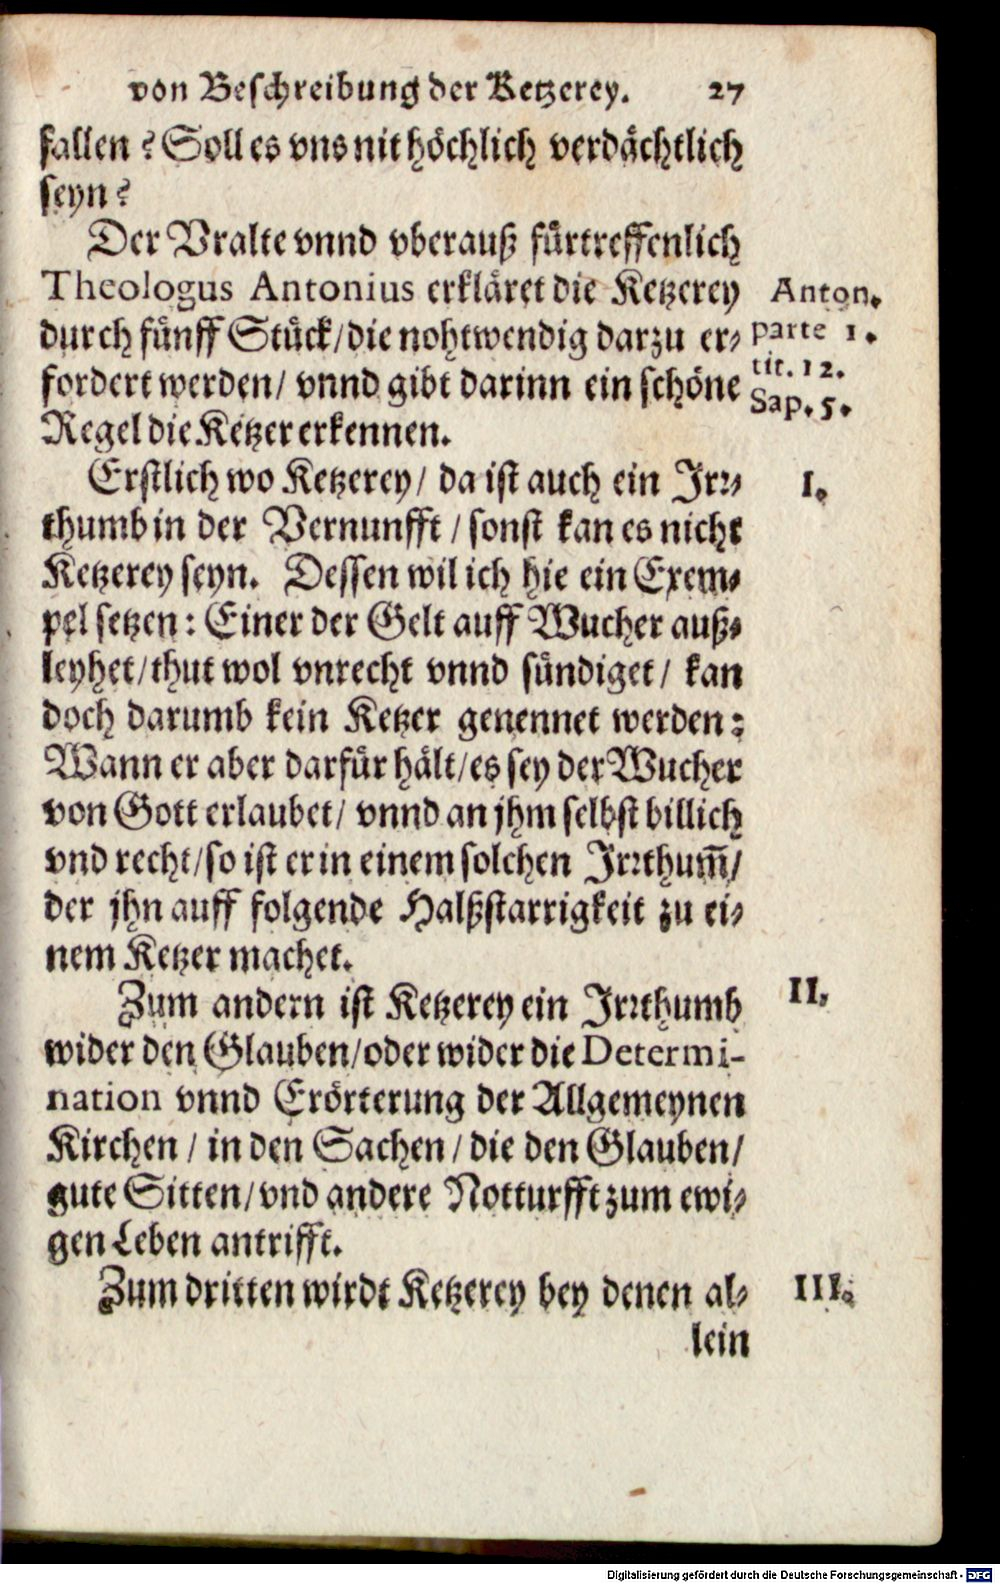 von Beschreibung der Ketzerey. 27
fallen? Soll es vns nit höchlich verdächtlich
seyn?
Der Vralte vnnd vberauß fürtreffenlich
Theologus Antonius erkläret die Ketzerey
Anton.
durch fünff Stück/die nohtwendig darzu er-
parte 1.
tit. 12.
fordert werden/ vnnd gibt darinn ein schöne
Sap. 5.
Regel die Ketzer erkennen.
Erstlich wo Ketzerey/ da ist auch ein Irr-
I.
thumb in der Vernunfft/sonst kan es nicht
Ketzerey seyn. Dessen wil ich hie ein Exem-
pel setzen: Einer der Gelt auff Wucher auß-
leyhet/thut wol vnrecht vnnd sündiget/ kan
doch darumb kein Ketzer genennet werden:
Wann er aber darfür hält/es sey der Wucher
von Gott erlaubet/ vnnd an jhm selbst billich
vnd recht/so ist er in einem solchen Irrthum̅/
der jhn auff folgende Halßstarrigkeit zu ei-
nem Ketzer machet.
Zum andern ist Ketzerey ein Irrthumb
II.
wider den Glauben/oder wider die Determi-
nation vnnd Erörterung der Allgemeynen
Kirchen/ in den Sachen/die den Glauben/
gute Sitten/vnd andere Notturfft zum ewi-
gen Leben antrifft.
Zum dritten wirdt Ketzerey bey denen al-
III.
lein
Digitalisierung gefördert durch die Deutsche Forschungsgemeinschaft - DFG